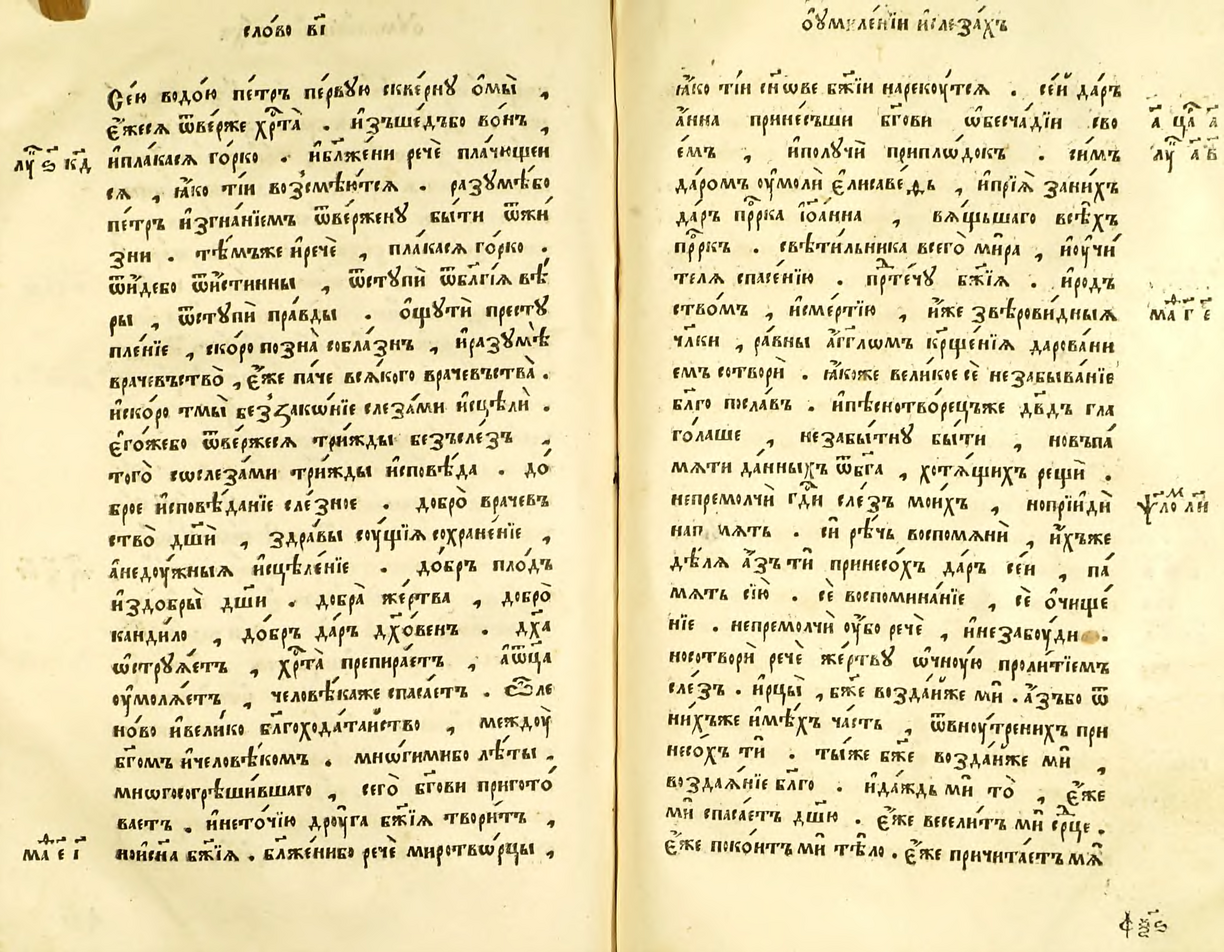 сло́во в҃і
Се́ю водо́ю пе́тръ пе́рвꙋю скве́рнꙋ ѡ҆мы̀ ,
є҆́жесѧ ѿве́рже хрⷭ҇та̀ . и҆зъше́дъбо во́нъ ,
лꙋ҃ ѕ҃ к҃д
и҆пла́касѧ го́рко . и҆бл҃же́ни речѐ пла́чющеи
сѧ , ꙗ҆́ко ті́и возсмѣю́тсѧ . разꙋмѣ́бо
пе́тръ и҆згна́нїемъ ѿве́рженꙋ бы́ти ѿжи́
зни . тѣ́мъже и҆речѐ , пла́касѧ го́рко .
ѿи́де́бо ѿи́стинны , ѿстꙋпѝ ѿбл҃гі́ѧ вѣ́
ры , ѿстꙋпѝ пра́вды . ѡ҆щꙋтѝ престꙋ
пле́нїе , ско́ро позна̀ собла́знъ , и҆разꙋмѣ̀
враче́въство̀ , є҆́же па́че всѧ́кого враче́въства̀ .
и҆ско́ро тмы̀ беззако́нїе слеза́ми и҆сцѣлѝ .
є҆го́жебо ѿве́ржесѧ три́жды безъсле́зъ ,
того̀ сѡслеза́ми три́жды и҆сповѣ́да . до́
брое и҆сповѣ́данїе сле́зное . добро̀ враче́въ
ство̀ дш҃и , здра́вы сꙋ́щїѧ сохране́нїе ,
а҆недꙋ́жныѧ и҆сцѣле́нїе . до́бръ пло́дъ
и҆здобры̀ дш҃и . добра̀ же́ртва , добро̀
кандило , до́бръ да́ръ дх҃о́венъ . дх҃а
ѡ҆стрꙋѧ́етъ , хрⷭ҇та̀ препира́етъ , а҆ѿца
ᲂу҆молѧ́етъ , человѣ́каже спаса́етъ . ѽле
но́во и҆вели́ко бл҃гохода́таиство , междᲂу̀
бг҃омъ и҆человѣ́комъ . мнѡ́гимибо лѣ́ты ,
мнѡгосогрѣши́вшаго , сего̀ бг҃ови пригото́
ваетъ . и҆нето́чїю дрᲂу́га бж҃їѧ твори́тъ ,
ма҃ е҃ і҃
нои҆сн҃а бж҃їѧ . бл҃же́нибо речѐ миротвѡ́рцы ,
ᲂу҆миле́нїи и҆слеза́хъ
ꙗ҆́ко ті́и сн҃ѡве бж҃їи нарекᲂу́тсѧ . се́й да́ръ
а҆́нна прине́съши бг҃ови ѡ҆бесча́дїи сво
а҃ цр҃а а҃
е́мъ , и҆полꙋчѝ припло́докъ . си́мъ
лꙋ҃ а҃ в҃
да́ромъ ᲂу҆молѝ є҆лисаве́дь , и҆прїѧ̀ зани́хъ
да́ръ прⷪ҇рка і҆ѡ́а́нна , вѧ́щьшаго всѣ́хъ
прⷪ҇ркъ . свѣти́льника всего̀ ми́ра , и҆ᲂу҆чи́
телѧ спасе́нїю . прⷣте́чꙋ бж҃їѧ . и҆родъ
ма҃ г҃ е҃
ство́мъ , и҆сме́ртїю , и҆́же звѣрови́дныѧ
чл҃ки , ра́вны а҆́гг҃лѡмъ крⷳще́нїѧ дарова́ни
емъ сотворѝ . ꙗ҆́коже вели́кое сѐ незабыва́нїе
бл҃го посла́въ . и҆пѣснотво́рецъже дв҃дъ гла
го́лаше , незабы́тнꙋ бы́ти , новъпа́
мѧти да́нныхъ ѿбг҃а , хотѧ́щихъ рещѝ .
непремолчѝ гдⷭ҇и сле́зъ мои́хъ , нопрїидѝ
ѱ҃лом л҃и
напамѧть . сѝ рѣ́чь воспомѧнѝ , и҆́хъже
дѣ́лѧ а҆́зъ тѝ принесо́хъ да́ръ се́и , па́
мѧть сїю̀ . сѐ воспомина́нїе , сѐ ѡ҆чище́
нїе . непремолчѝ ᲂу҆́бо речѐ , и҆незабᲂу́ди .
носотворѝ речѐ же́ртвꙋ ѻ҆́чнᲂую проли́тїемъ
сле́зъ . и҆рцы̀ , бж҃е возда́йже мѝ . а҆́зъбо ѿ
ни́хъже и҆мѣ́хъ ча́сть , ѿвнᲂу́тренихъ при
несо́хъ тѝ . ты́же бж҃е возда́йже мѝ ,
воздаѧ́нїе бл҃го . и҆да́ждь мѝ то̀ , є҆́же
мѝ спаса́етъ дш҃ю . є҆́же весели́тъ мѝ срⷣце .
є҆́же поко́итъ мѝ тѣ́ло . є҆́же причита́етъ мѧ̀